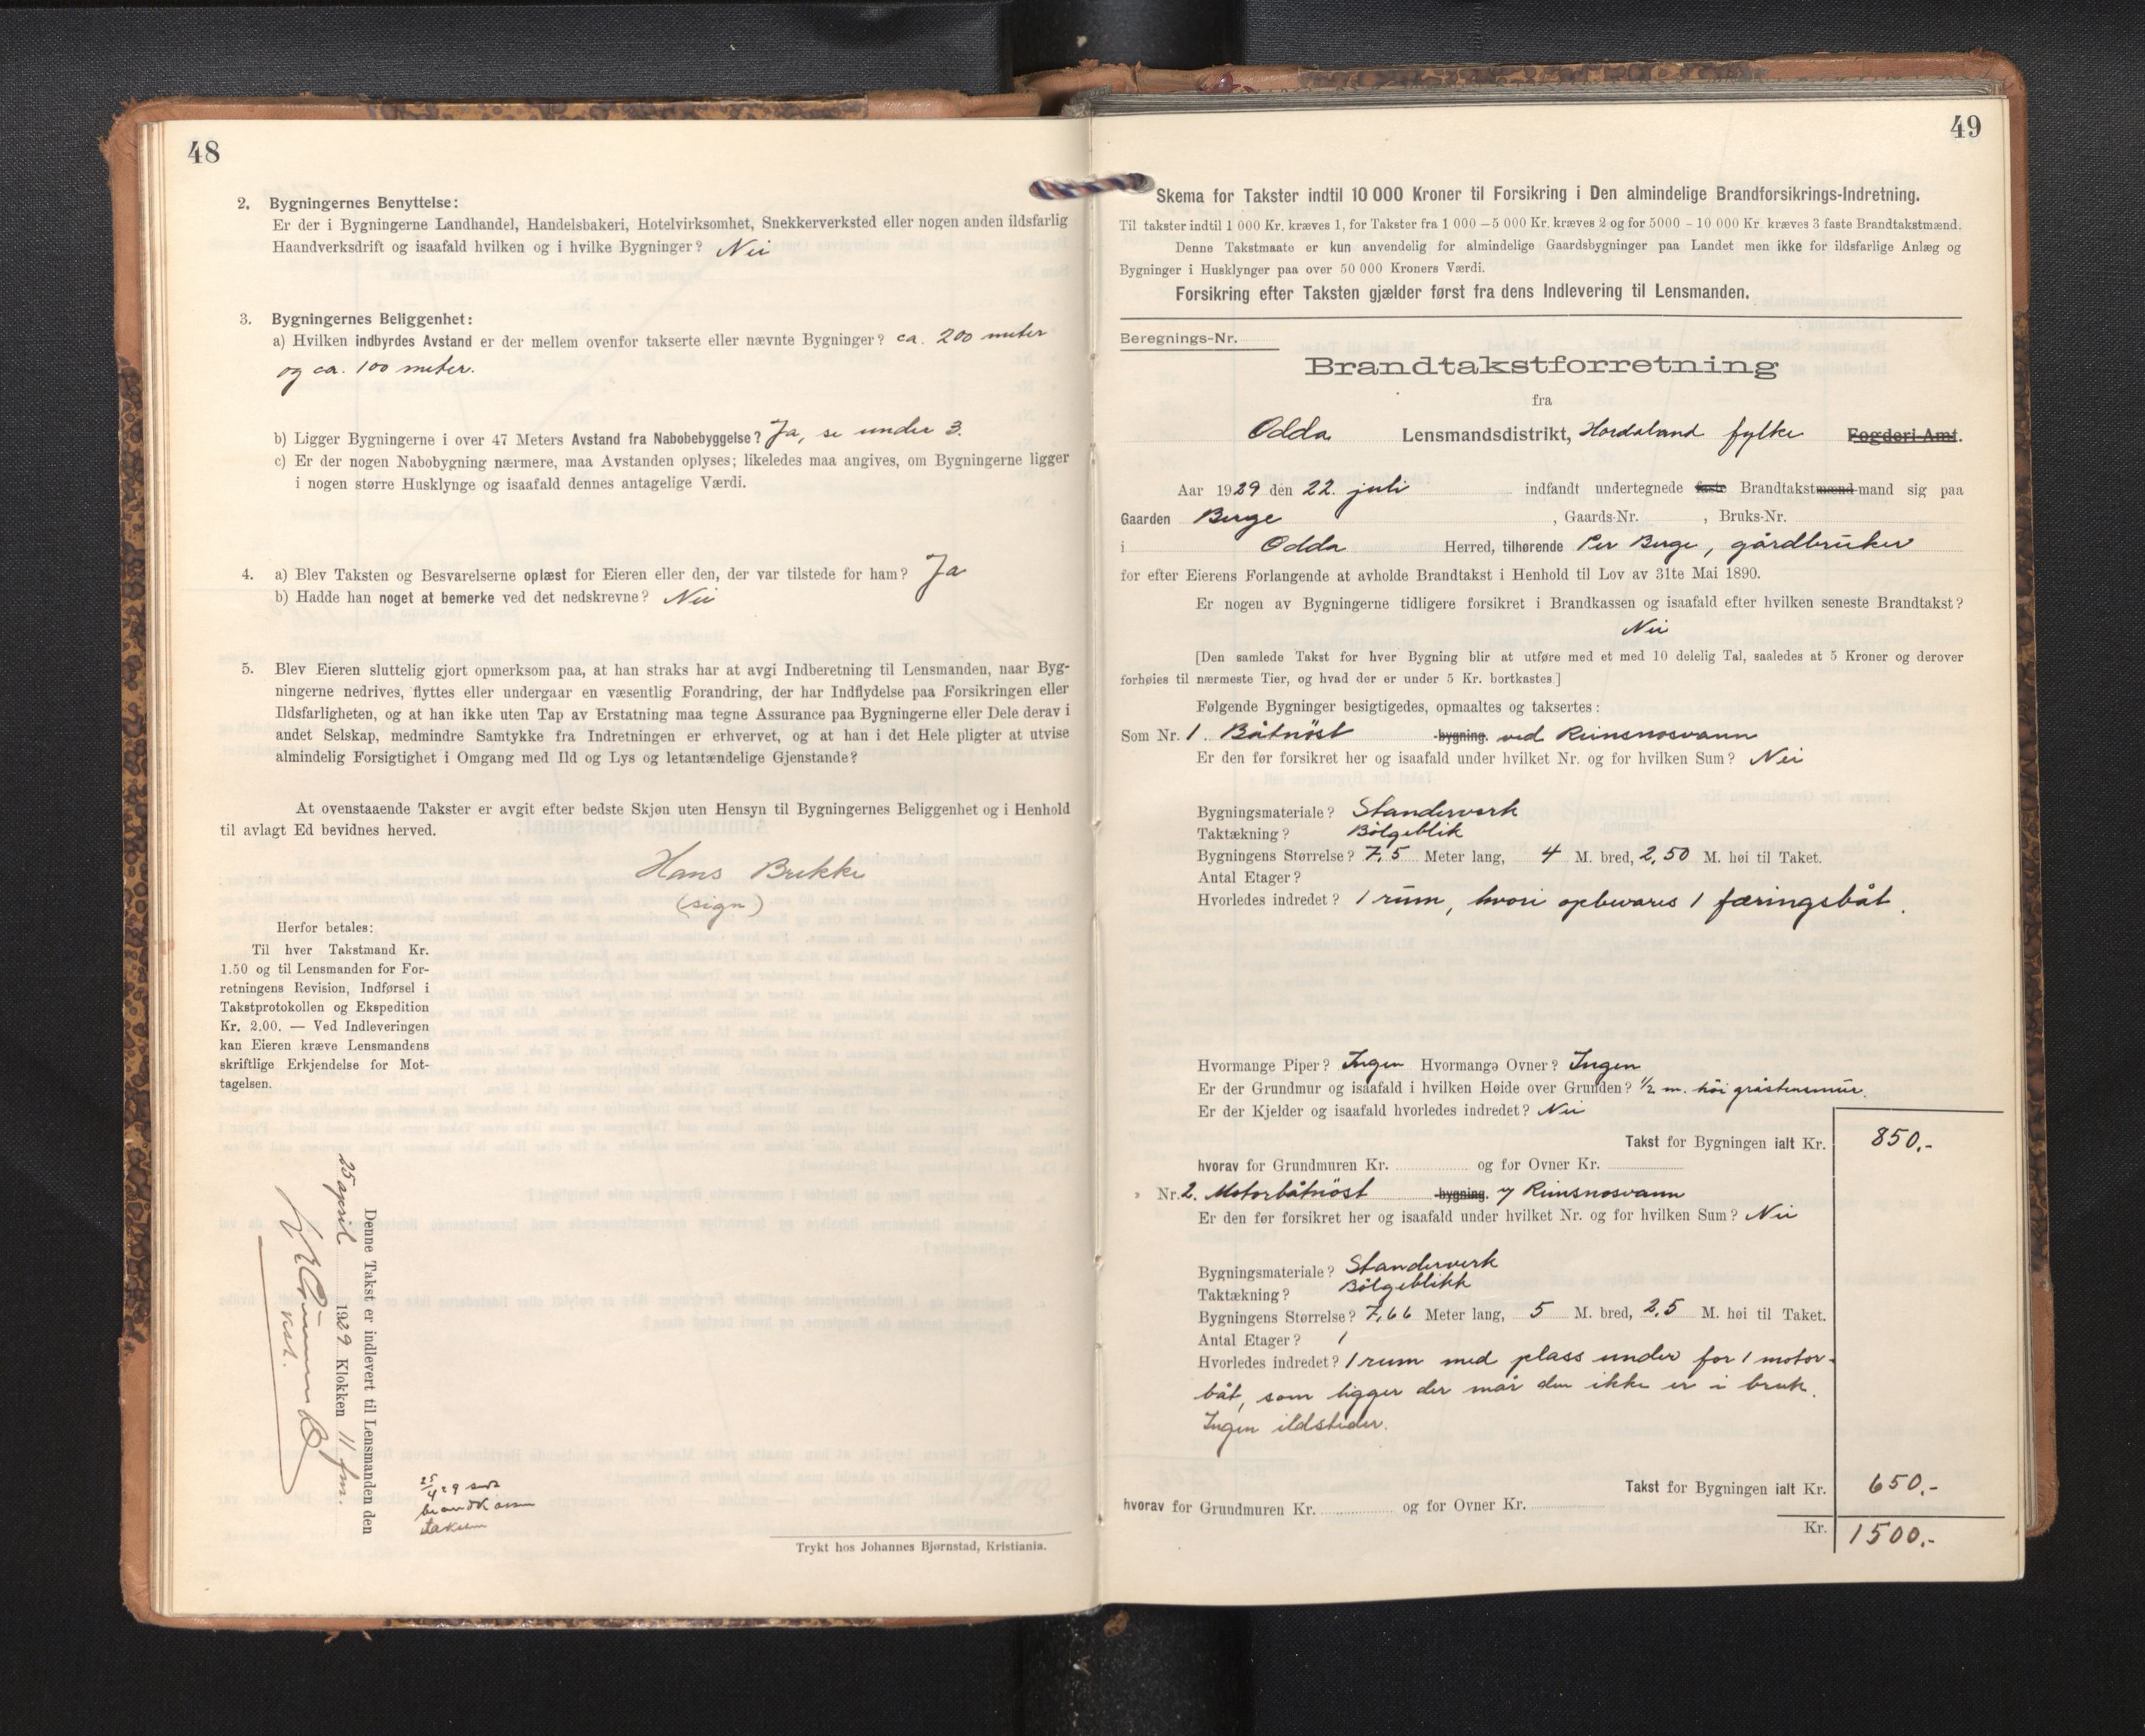 48
2. Bygningernes Benyttelse:
Er der i Bygningerne Landhandel, Handelsbakeri, Hotelvirksomhet, Snekkerverksted eller nogen anden ildsfarlig
Haandverksdrift og isaafald hvilken og i hvilke Bygninger? Nei
3. Bygningernes Beliggenhet:
a) Hvilken indbyrdes Avstand er der mellem ovenfor takserte eller nævnte Bygninger? ca. 200 meter
og ca. 100 meter.
b) Ligger Bygningerne i over 47 Meters Avstand fra Nabobebyggelse? Ja, se under 3.
c) Er der nogen Nabobygning nærmere, maa Avstanden oplyses; likeledes maa angives, om Bygningerne ligger
i nogen større Husklynge og isaafald dennes antagelige Værdi.
4. a) Blev Taksten og Besvarelserne oplæst for Eieren eller den, der var tilstede for ham? Ja
b) Hadde han noget at bemerke ved det nedskrevne? Nei
5. Blev Eieren sluttelig gjort opmerksom paa, at han straks har at avgi Indberetning til Lensmanden, naar Byg-
ningerne nedrives, flyttes eller undergaar en væsentlig Forandring, der har Indflydelse paa Forsikringen eller
Ildsfarligheten, og at han ikke uten Tap av Erstatning maa tegne Assurance paa Bygningerne eller Dele derav i
andet Selskap, medmindre Samtykke fra Indretningen er erhvervet, og at han i det Hele pligter at utvise
almindelig Forsigtighet i Omgang med Ild og Lys og letantændelige Gjenstande?
At ovenstaaende Takster er avgit efter bedste Skjøn uten Hensyn til Bygningernes Beliggenhet og i Henhold
til avlagt Ed bevidnes herved.
Hans Bekke
(sign)
Herfor betales:
Til hver Takstmand Kr.
1.50 og til Lensmanden for For-
retningens Revision, Indførsel i
Takstprotokollen og Ekspedition
Kr. 2.00. — Ved Indleveringen
kan Eieren kræve Lensmandens
skriftlige Erkjendelse for Mot-
tagelsen.
Denne Takst er indlevert til Lensmanden den
25 april 1929 Klokken 11 fm.
25/4 29
brandkassen
taksten
Trykt hos Johannes Bjørnstad, Kristiania.
49
Skema for Takster indtil 10 000 Kroner til Forsikring i Den almindelige Brandforsikrings-Indretning.
Til takster indtil 1 000 Kr. kræves 1, for Takster fra 1 000 – 5 000 Kr. kræves 2 og for 5000 – 10 000 Kr. kræves 3 faste Brandtakstmænd.
Denne Takstmaate er kun anvendelig for almindelige Gaardsbygninger paa Landet men ikke for ildsfarlige Anlæg og
Bygninger i Husklynger paa over 50 000 Kroners Værdi.
Forsikring efter Taksten gjælder først fra dens Indlevering til Lensmanden.
Beregnings-Nr.
Brandtakstforretning
fra
Odda Lensmandsdistrikt, Hordaland fylke Fogderi Amt.
Aar 1929 den 22. juli indfandt undertegnede faste Brandtakstmænd-mand sig paa
Gaarden Berge, Gaards-Nr. , Bruks-Nr.
i Odda Herred, tilhørende Per Berge, gårdbruker
for efter Eierens Forlangende at avholde Brandtakst i Henhold til Lov av 31te Mai 1890.
Er nogen av Bygningerne tidligere forsikret i Brandkassen og isaafald efter hvilken seneste Brandtakst?
Nei
[Den samlede Takst for hver Bygning blir at utføre med et med 10 delelig Tal, saaledes at 5 Kroner og derover
forhøies til nærmeste Tier, og hvad der er under 5 Kr. bortkastes.]
Følgende Bygninger besigtigedes, opmaaltes og taksertes:
Som Nr. 1. Båtnöst bygning. ved Reinsnosvann
Er den før forsikret her og isaafald under hvilket Nr. og for hvilken Sum? Nei
Bygningsmateriale? Standerverk
Taktækning? Bölgeblik
Bygningens Størrelse? 7,5 Meter lang, 4 M. bred, 2,50 M. høi til Taket.
Antal Etager?
Hvorledes indredet? 1 rum, hvori opbevares 1 færingsbåt.
Hvormange Piper? Ingen Hvormange Ovner? Ingen
Er der Grundmur og isaafald i hvilken Høide over Grunden? 1/2 m. höi gråstensmur.
Er der Kjelder og isaafald hvorledes indredet? Nei
Takst for Bygningen ialt Kr. 850.-
hvorav for Grundmuren Kr. og for Ovner Kr.
» Nr. 2. Motorbåtnöst bygning. v/ Reinsnosvann
Er den før forsikret her og isaafald under hvilket Nr. og for hvilken Sum? Nei
Bygningsmateriale? Standerverk
Taktækning? Bölgeblikk
Bygningens Størrelse? 7,66 Meter lang, 5 M. bred, 2,5 M. høi til Taket.
Antal Etager? 1
Hvorledes indredet? 1 rum med plass under for 1 motor-
båt, som ligger der når den ikke er i bruk.
Ingen ildsteder.
Takst for Bygningen ialt Kr. 650.-
hvorav for Grundmuren Kr. og for Ovner Kr.
Kr. 1500.-